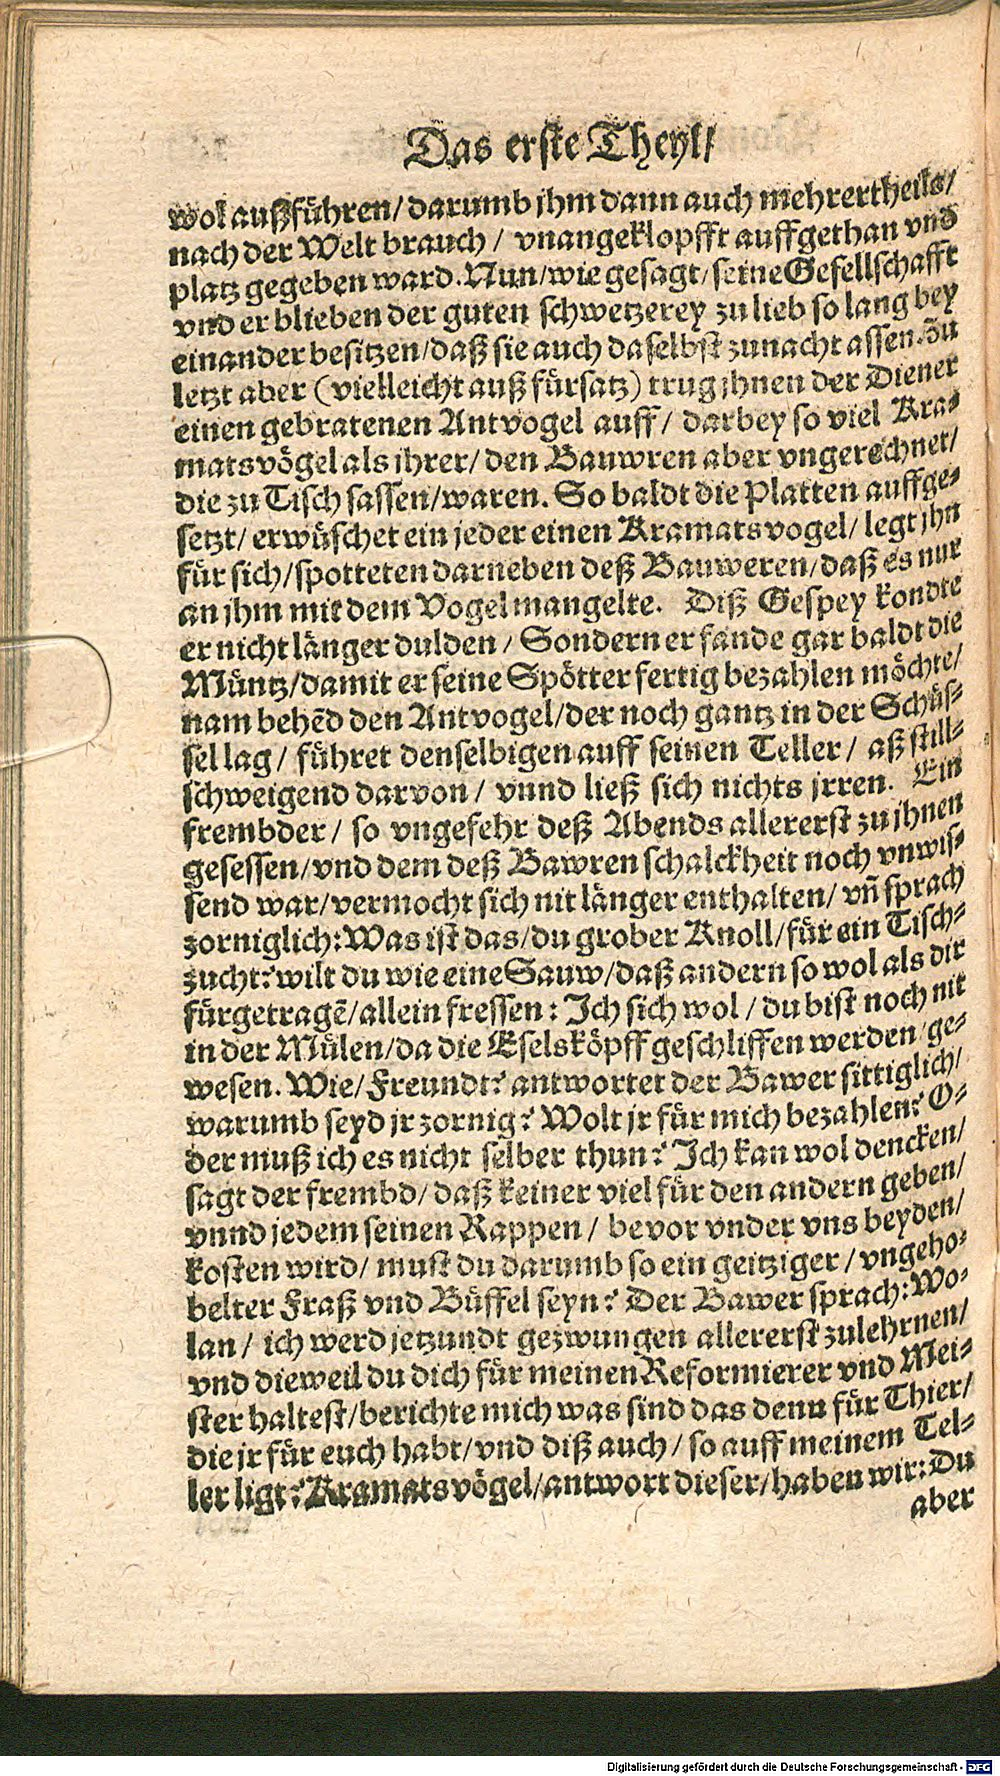 Das erste Theyl/
wol außführen/ darumb jhm dann auch mehrertheils/
nach der Welt brauch / vnangeklopfft auffgethan vnd
platz gegeben ward. Nun/ wie gesagt/ seine Gesellschafft
vnd er blieben der guten schwetzerey zu lieb so lang bey
einander besitzen/ daß sie auch daselbst zunacht assen. Zu
letzt aber (vielleicht auß fürsatz) trug jhnen der Diener
einen gebratenen Antvogel auff / darbey so viel Kra-
matsvögel als jhrer/ den Bauwren aber vngerechnet/
die zu Tisch sassen/ waren. So baldt die Platten auffge-
setzt/ erwüschet ein jeder einen Kramatsvogel/ legt jhn
für sich/ spotteten darneben deß Bauweren/ daß es nur
an jhm mit dem Vogel mangelte. Diß Gespey kondte
er nicht länger dulden / Sondern er fande gar baldt die
Müntz/ damit er seine Spötter fertig bezahlen möchte/
nam behẽd den Antvogel/ der noch gantz in der Schüs-
sel lag / führet denselbigen auff seinen Teller / aß still-
schweigend darvon / vnnd ließ sich nichts jrren. Ein
frembder / so vngefehr deß Abends allererst zu jhnen
gesessen/ vnd dem deß Bawren schalckheit noch vnwis-
send war/ vermocht sich nit länger enthalten/ vñ sprach
zorniglich: Was ist das/ du grober Knoll/ für ein Tisch-
zucht? wilt du wie eine Sauw/ daß andern so wol als dir
fürgetragẽ/ allein fressen: Ich sich wol / du bist noch nit
in der Mülen/ da die Eselsköpff geschliffen werden/ ge-
wesen. Wie/ Freundt? antwortet der Bawer sittiglich/
warumb seyd jr zornig? Wolt jr für mich bezahlen? O-
der muß ich es nicht selber thun? Ich kan wol dencken/
sagt der frembd/ daß keiner viel für den andern geben/
vnnd jedem seinen Rappen / bevor vnder vns beyden/
kosten wird/ must du darumb so ein geitziger / vngeho-
belter Fraß vnd Büffel seyn? Der Bawer sprach: Wo-
lan / ich werd jetzundt gezwungen allererst zulehrnen/
vnd dieweil du dich für meinen Reformierer vnd Mei-
ster haltest/ berichte mich was sind das denn für Thier/
die jr für euch habt/ vnd diß auch / so auff meinem Tel-
ler ligt? Kramatsvögel/ antwort dieser/ haben wir: Du
aber
Digitalisierung gefördert durch die Deutsche Forschungsgemeinschaft - DFG